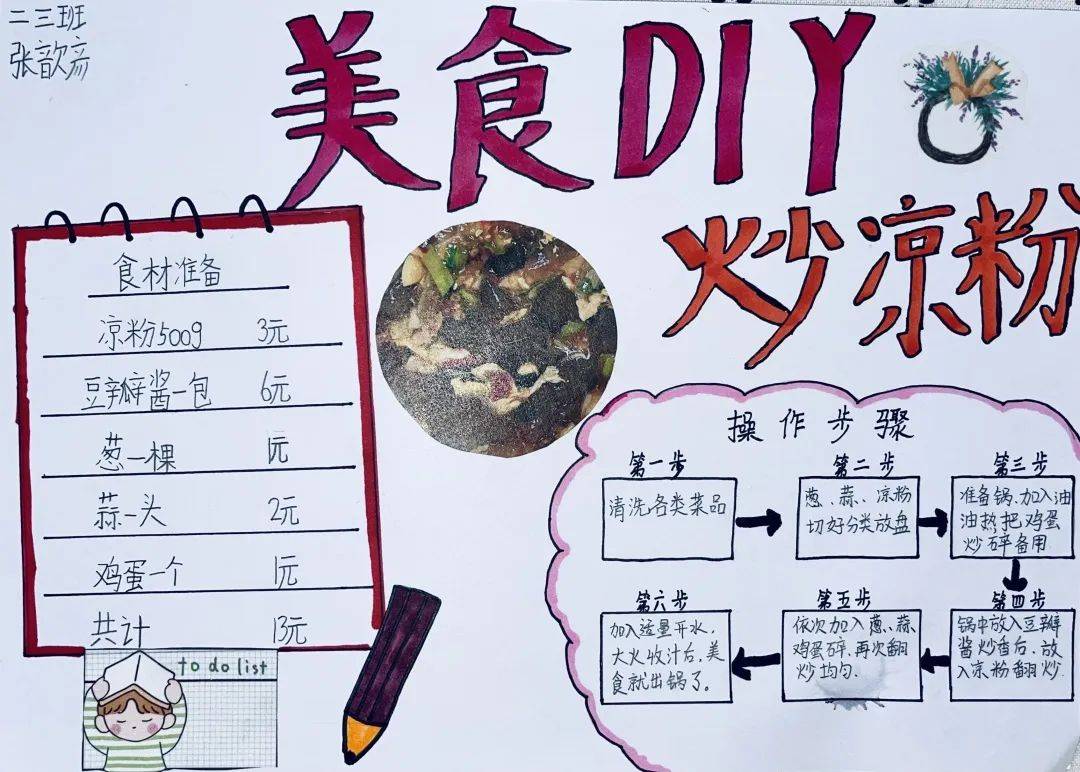 二三班
张歆彦
美食DIY
炒凉粉
食材准备
凉粉500g 3元
豆瓣酱一包 6元
葱一棵 1元
蒜一头 2元
鸡蛋一个 1元
共计 13元
to do list
操作步骤
第一步
清洗各类菜品
第二步
葱、蒜、凉粉
切好分类放盘
第三步
准备锅、加入油
油热把鸡蛋
炒碎备用
第四步
锅中放入豆瓣
酱炒香后,放
入凉粉翻炒
第五步
依次加入葱、蒜、
鸡蛋碎,再次翻
炒均匀.
第六步
加入适量开水,
大火收汁后,美
食就出锅了。